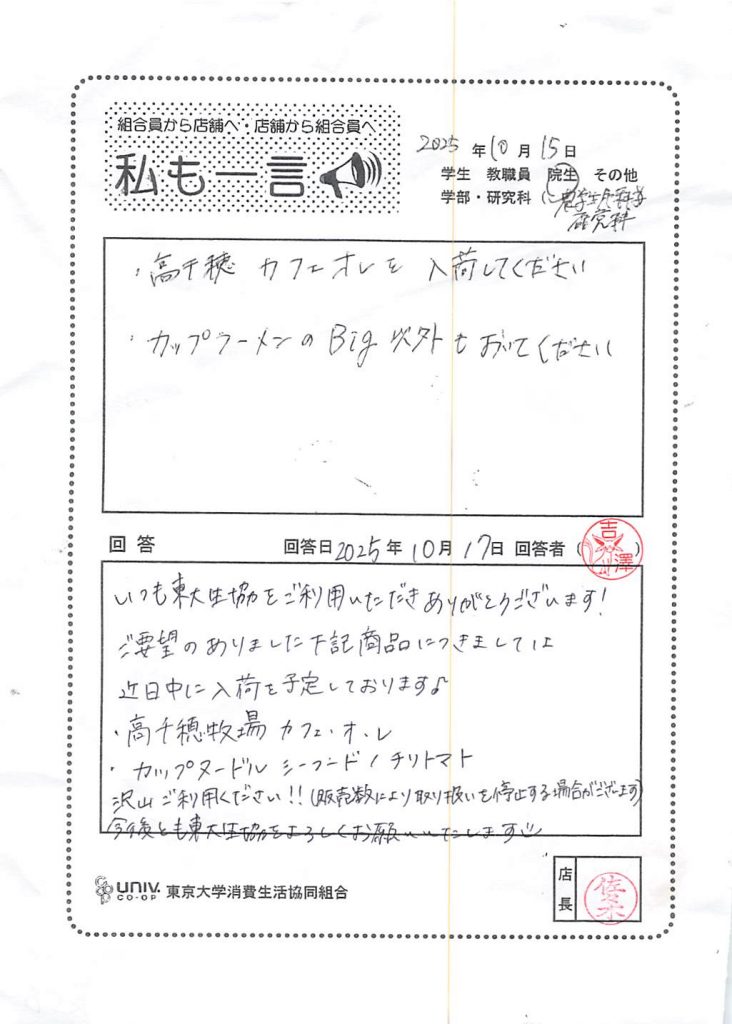 組合員から店舗へ・店舗から組合員へ
私も一言
2025 年 10 月 15 日
学生 教職員 院生 その他
学部・研究科 (農学生命科学
研究科
・高千穂 カフェオレを 入荷してください
・カップラーメンの Big 以外も おいてください
回答 回答日 2025 年 10 月 17 日 回答者 (吉澤)
いつも東大生協をご利用いただきありがとうございます!
ご要望のありました下記商品につきましては
近日中に入荷を予定しております♪
・高千穂牧場 カフェ・オ・レ
・カップヌードル シーフード / チリトマト
沢山ご利用ください!! (販売数により取り扱いを停止する場合がございます)
今後とも東大生協をよろしくお願いいたします
UNIV. CO-OP 東京大学消費生活協同組合
店長 佐々木